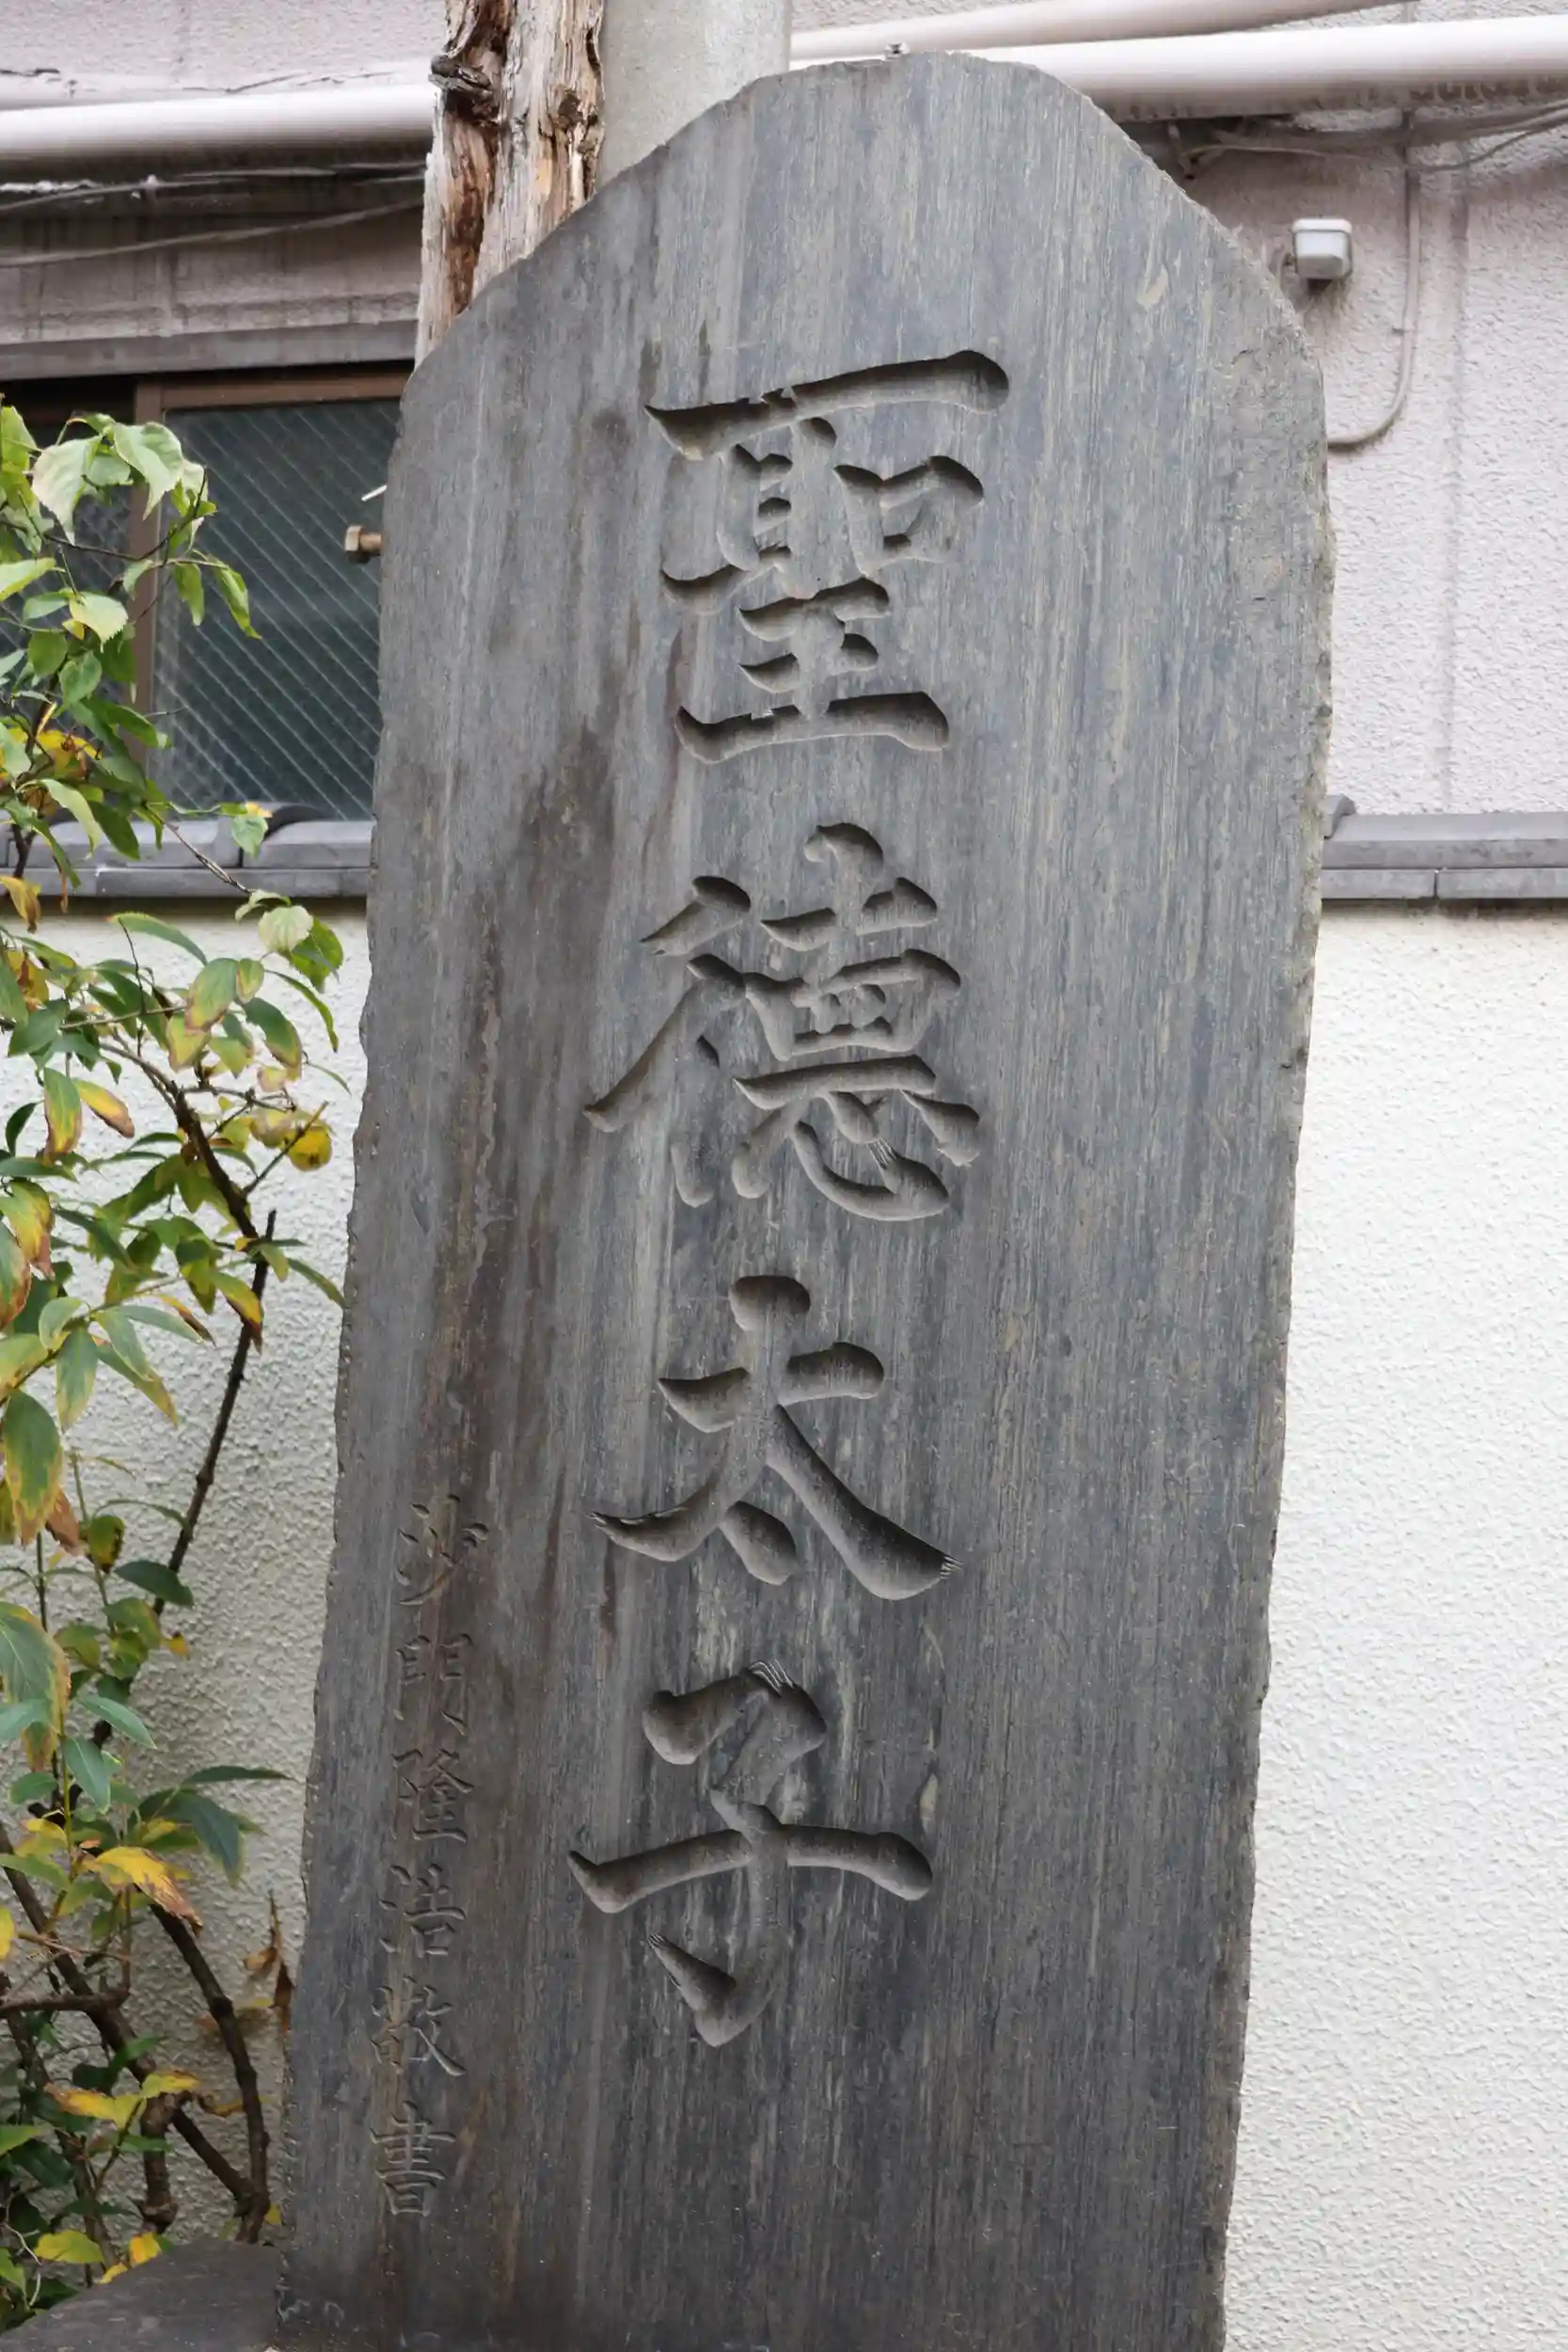 聖德太子
沙門隆浩敬書